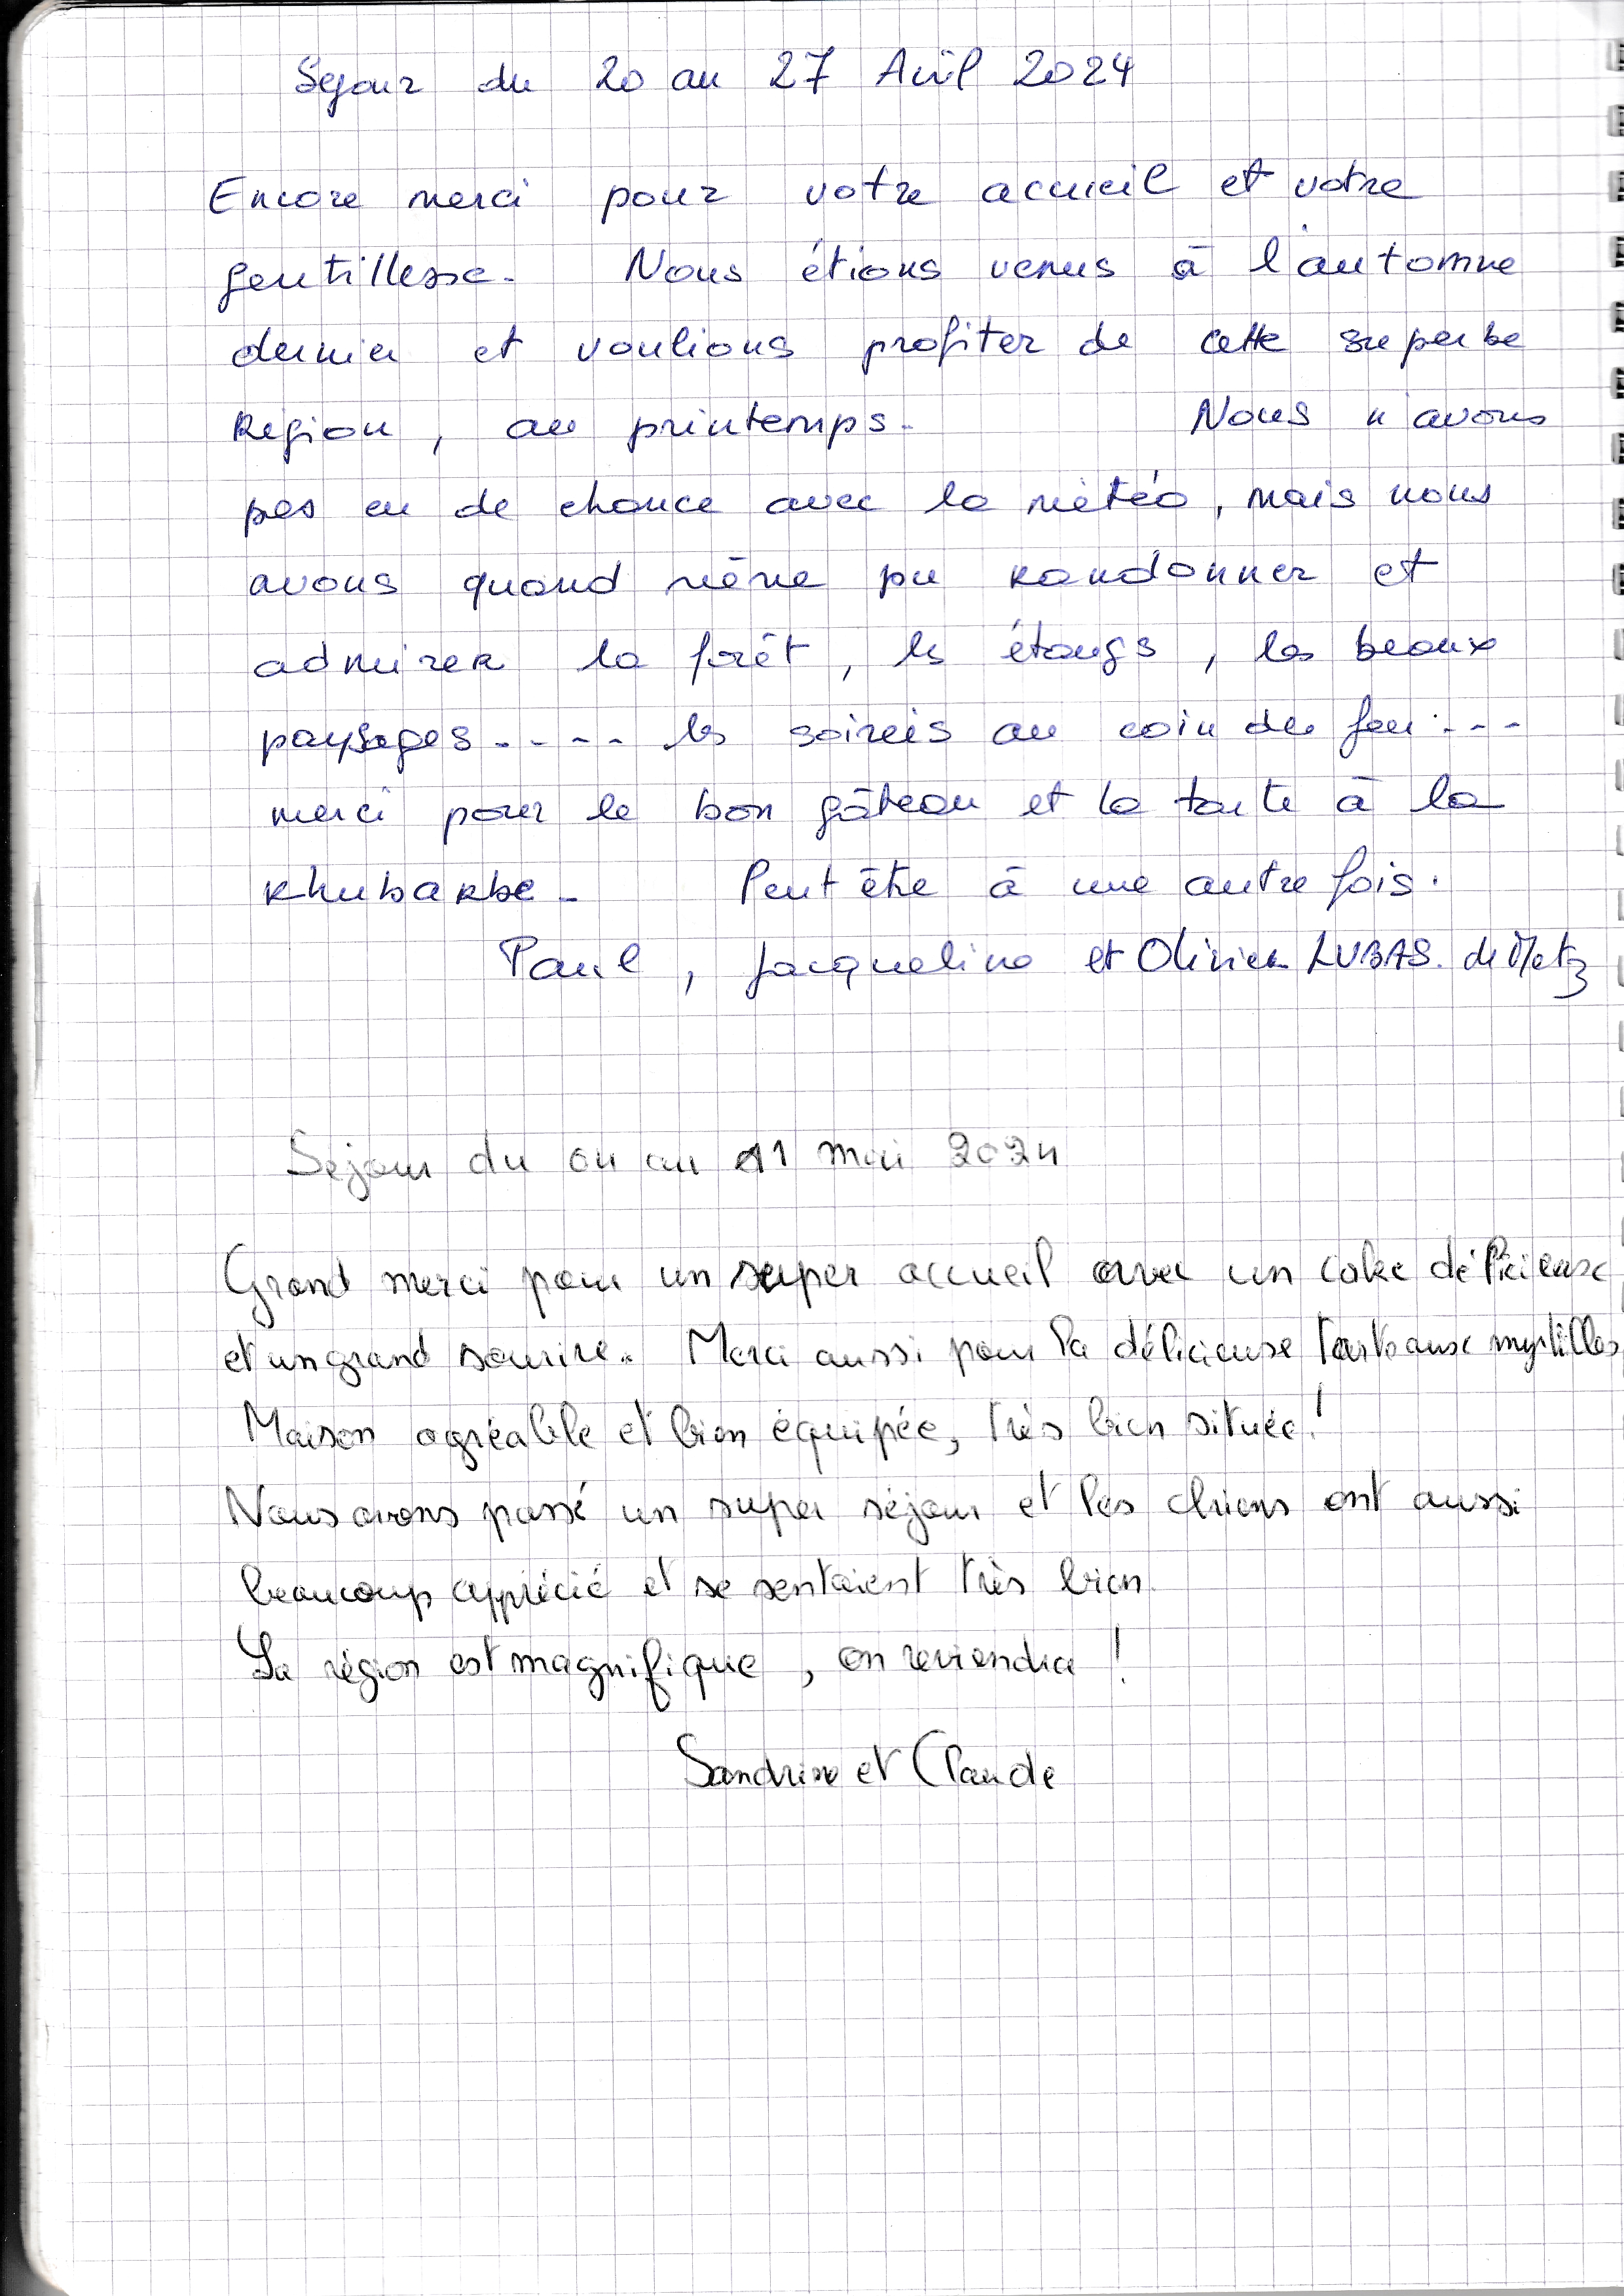 Séjour du 20 au 27 Avril 2024
Encore merci pour votre accueil et votre
gentillesse. Nous étions venus à l'automne
dernier et voulions profiter de cette superbe
Région, au printemps. Nous n'avons
pas eu de chance avec la météo, mais nous
avons quand même pu randonner et
admirer la forêt, les étangs, les beaux
paysages.... les soirées au coin du feu....
merci pour le bon gâteau et la tarte à la
rhubarbe. Peut être à une autre fois.
Paul, Jacqueline et Olivier LUBAS. de Metz
Séjour du 04 au 11 mai 2024
Grand merci pour un super accueil avec un cake délicieux
et un grand sourire. Merci aussi pour la délicieuse tarte aux myrtilles
Maison agréable et bien équipée, très bien située!
Nous avons passé un super séjour et les chiens ont aussi
beaucoup apprécié et se sentaient très bien.
La région est magnifique, on reviendra !
Sandrine et Claude